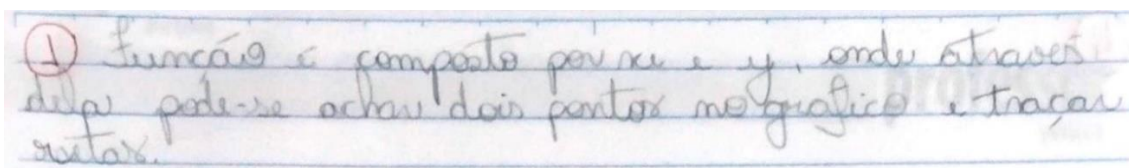 ① Função é composto por x e y, onde atraves
dela pode-se achar dois pontos no grafico e traçar
retas.